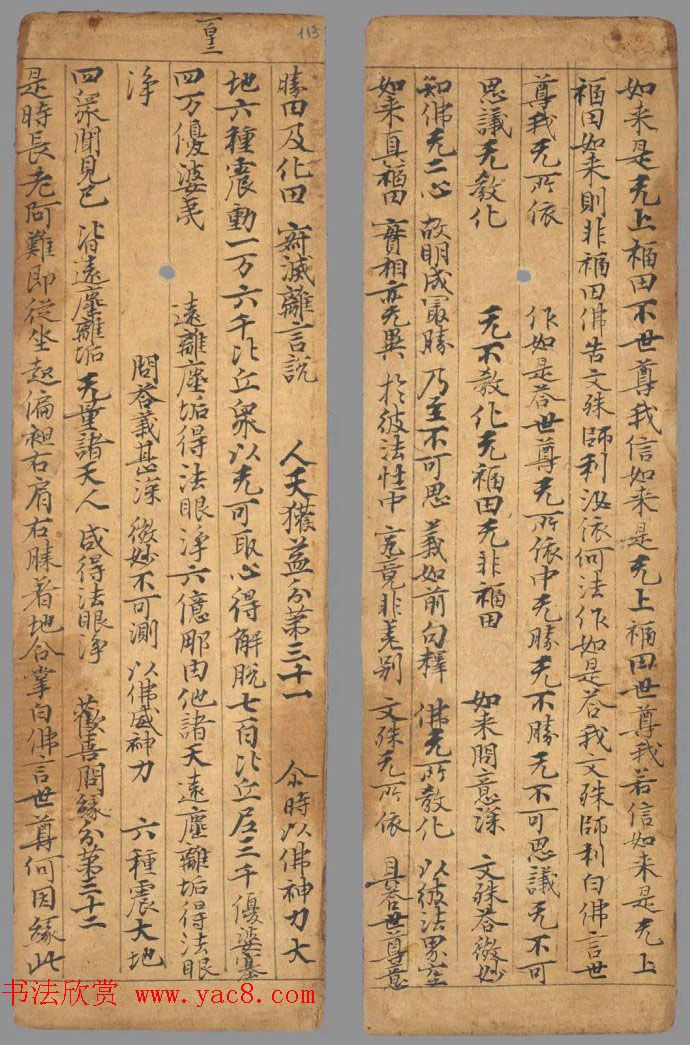 如来是无上福田不世尊我信如来是无上福田世尊我若信如来是无上
福田如来则非福田佛告文殊師利汝依何法作如是荅我文殊師利白佛言世
尊我无所依 作如是荅世尊无所依中无勝无不勝无不可思議无不可
思議无教化 无不教化无福田无非福田 如来問意深 文殊荅微妙
知佛无二心 故明成最勝 乃至不可思 義如前句釋 佛无所教化 以彼法界空
如来真福田 實相亦无異 於彼法性中 究竟非差别 文殊无所依 且荅世尊意
勝田及化田 寂滅離言説 人天獲益分第三十一 尒時以佛神力大
地六種震動一万六千比丘衆以无可取心得解脱七百比丘尼三千優婆塞
四万優婆夷 遠離塵垢得法眼淨六億那由他諸天遠塵離垢得法眼
淨 問荅義甚深 微妙不可測 以佛威神力 六種震大地
四衆聞見已 皆遠塵離垢 无量諸天人 咸得法眼淨 歡喜問緣分第三十二
是時長老阿難即從坐起偏袒右肩右膝着地合掌白佛言世尊何因緣此
一百三
113
书法欣赏 www.yac8.com